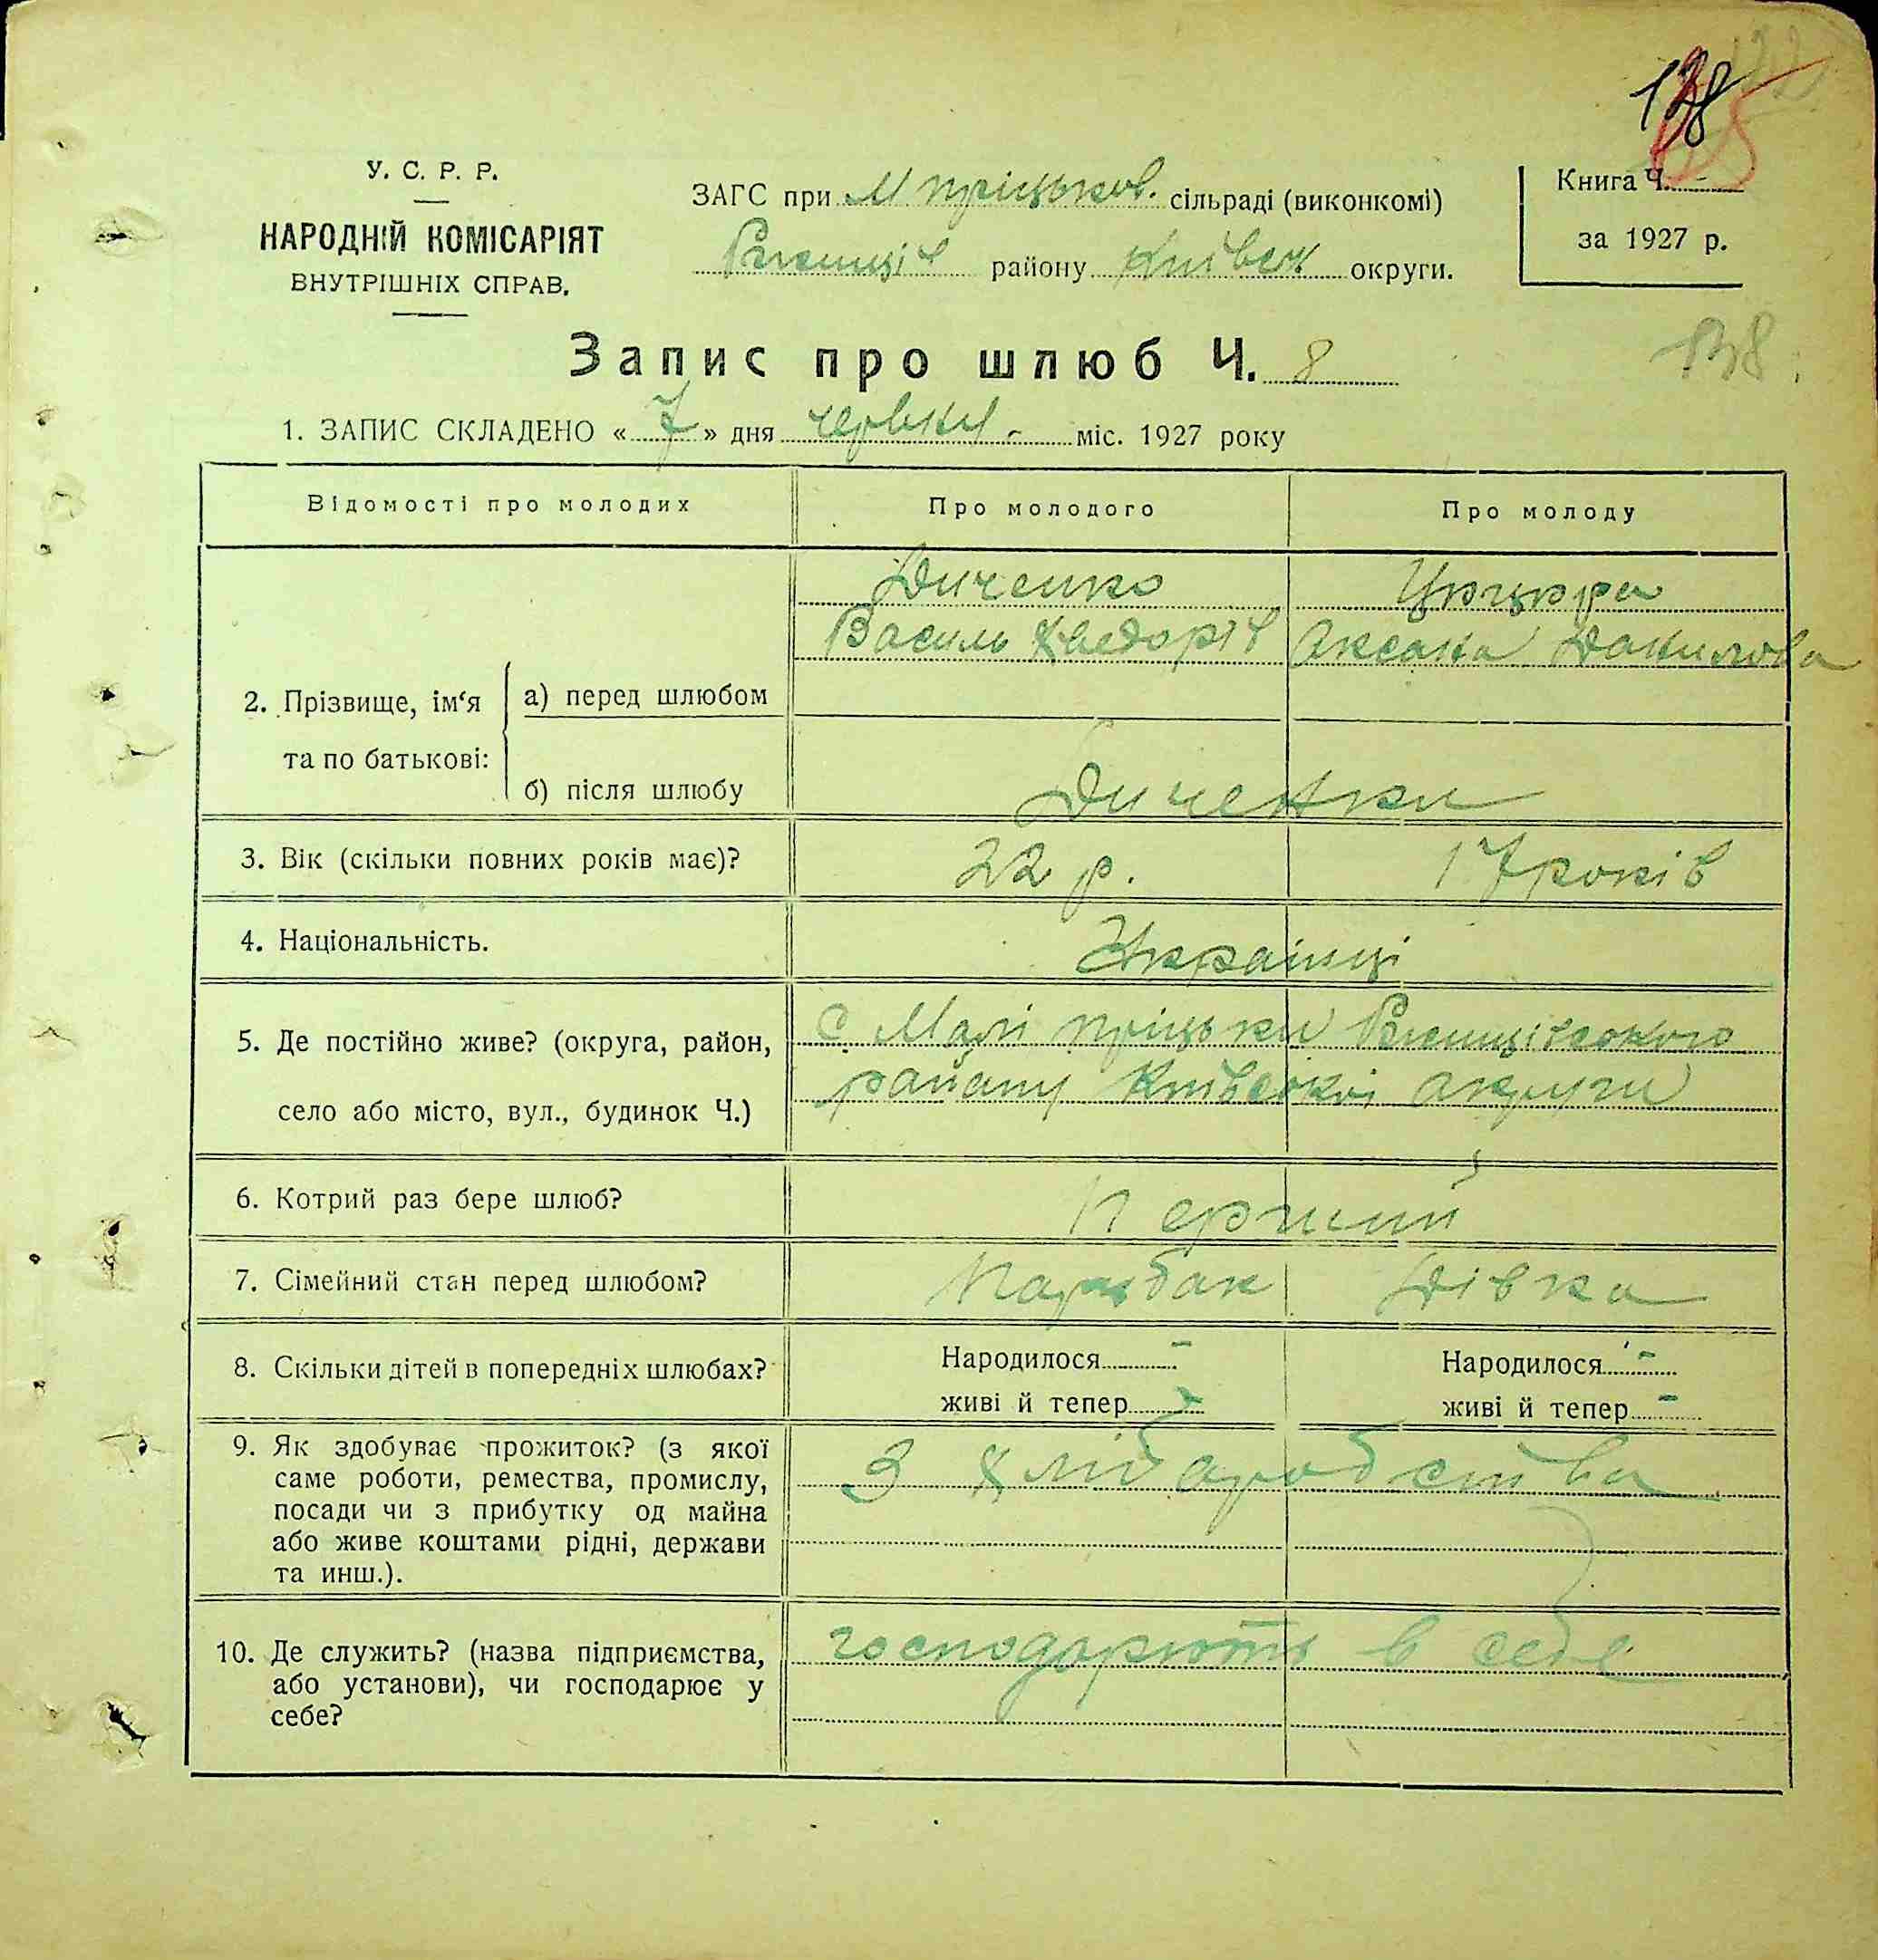 138
У. С. Р. Р.
НАРОДНІЙ КОМІСАРІЯТ
ВНУТРІШНІХ СПРАВ.
ЗАГС при М Пріцьков. сільраді (виконкомі)
Ржищів району Київськ округи.
Книга Ч.
за 1927 р.
138
Запис про шлюб Ч. 8
1. ЗАПИС СКЛАДЕНО « 7 » дня червня міс. 1927 року
Відомості про молодих
Про молодого
Про молоду
Диченко
Василь Хведорів
Аксана Данилова
2. Прізвище, ім‘я та по батькові:
а) перед шлюбом
б) після шлюбу
Диченки
3. Вік (скільки повних років має)?
22 р.
17 років
4. Національність.
Українці
5. Де постійно живе? (округа, район,
село або місто, вул., будинок Ч.)
С Малі Пріцьки Ржищівського
району Київської округи
6. Котрий раз бере шлюб?
Перший
7. Сімейний стан перед шлюбом?
Парубак
Дівка
8. Скільки дітей в попередніх шлюбах?
Народилося -
живі й тепер -
Народилося -
живі й тепер -
9. Як здобуває прожиток? (з якої
саме роботи, ремества, промислу,
посади чи з прибутку од майна
або живе коштами рідні, держави
та инш.).
З хліборобства
10. Де служить? (назва підприємства,
або установи), чи господарює у
себе?
господарюють в себе